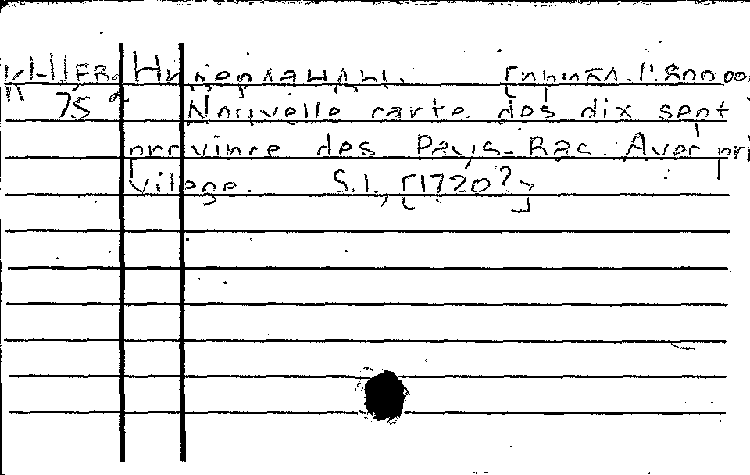 Нидерланды.
75 Nouvelle carte des dix sept
province des Pays-Bas. Avec pri
vilege. S.l., [1720?]